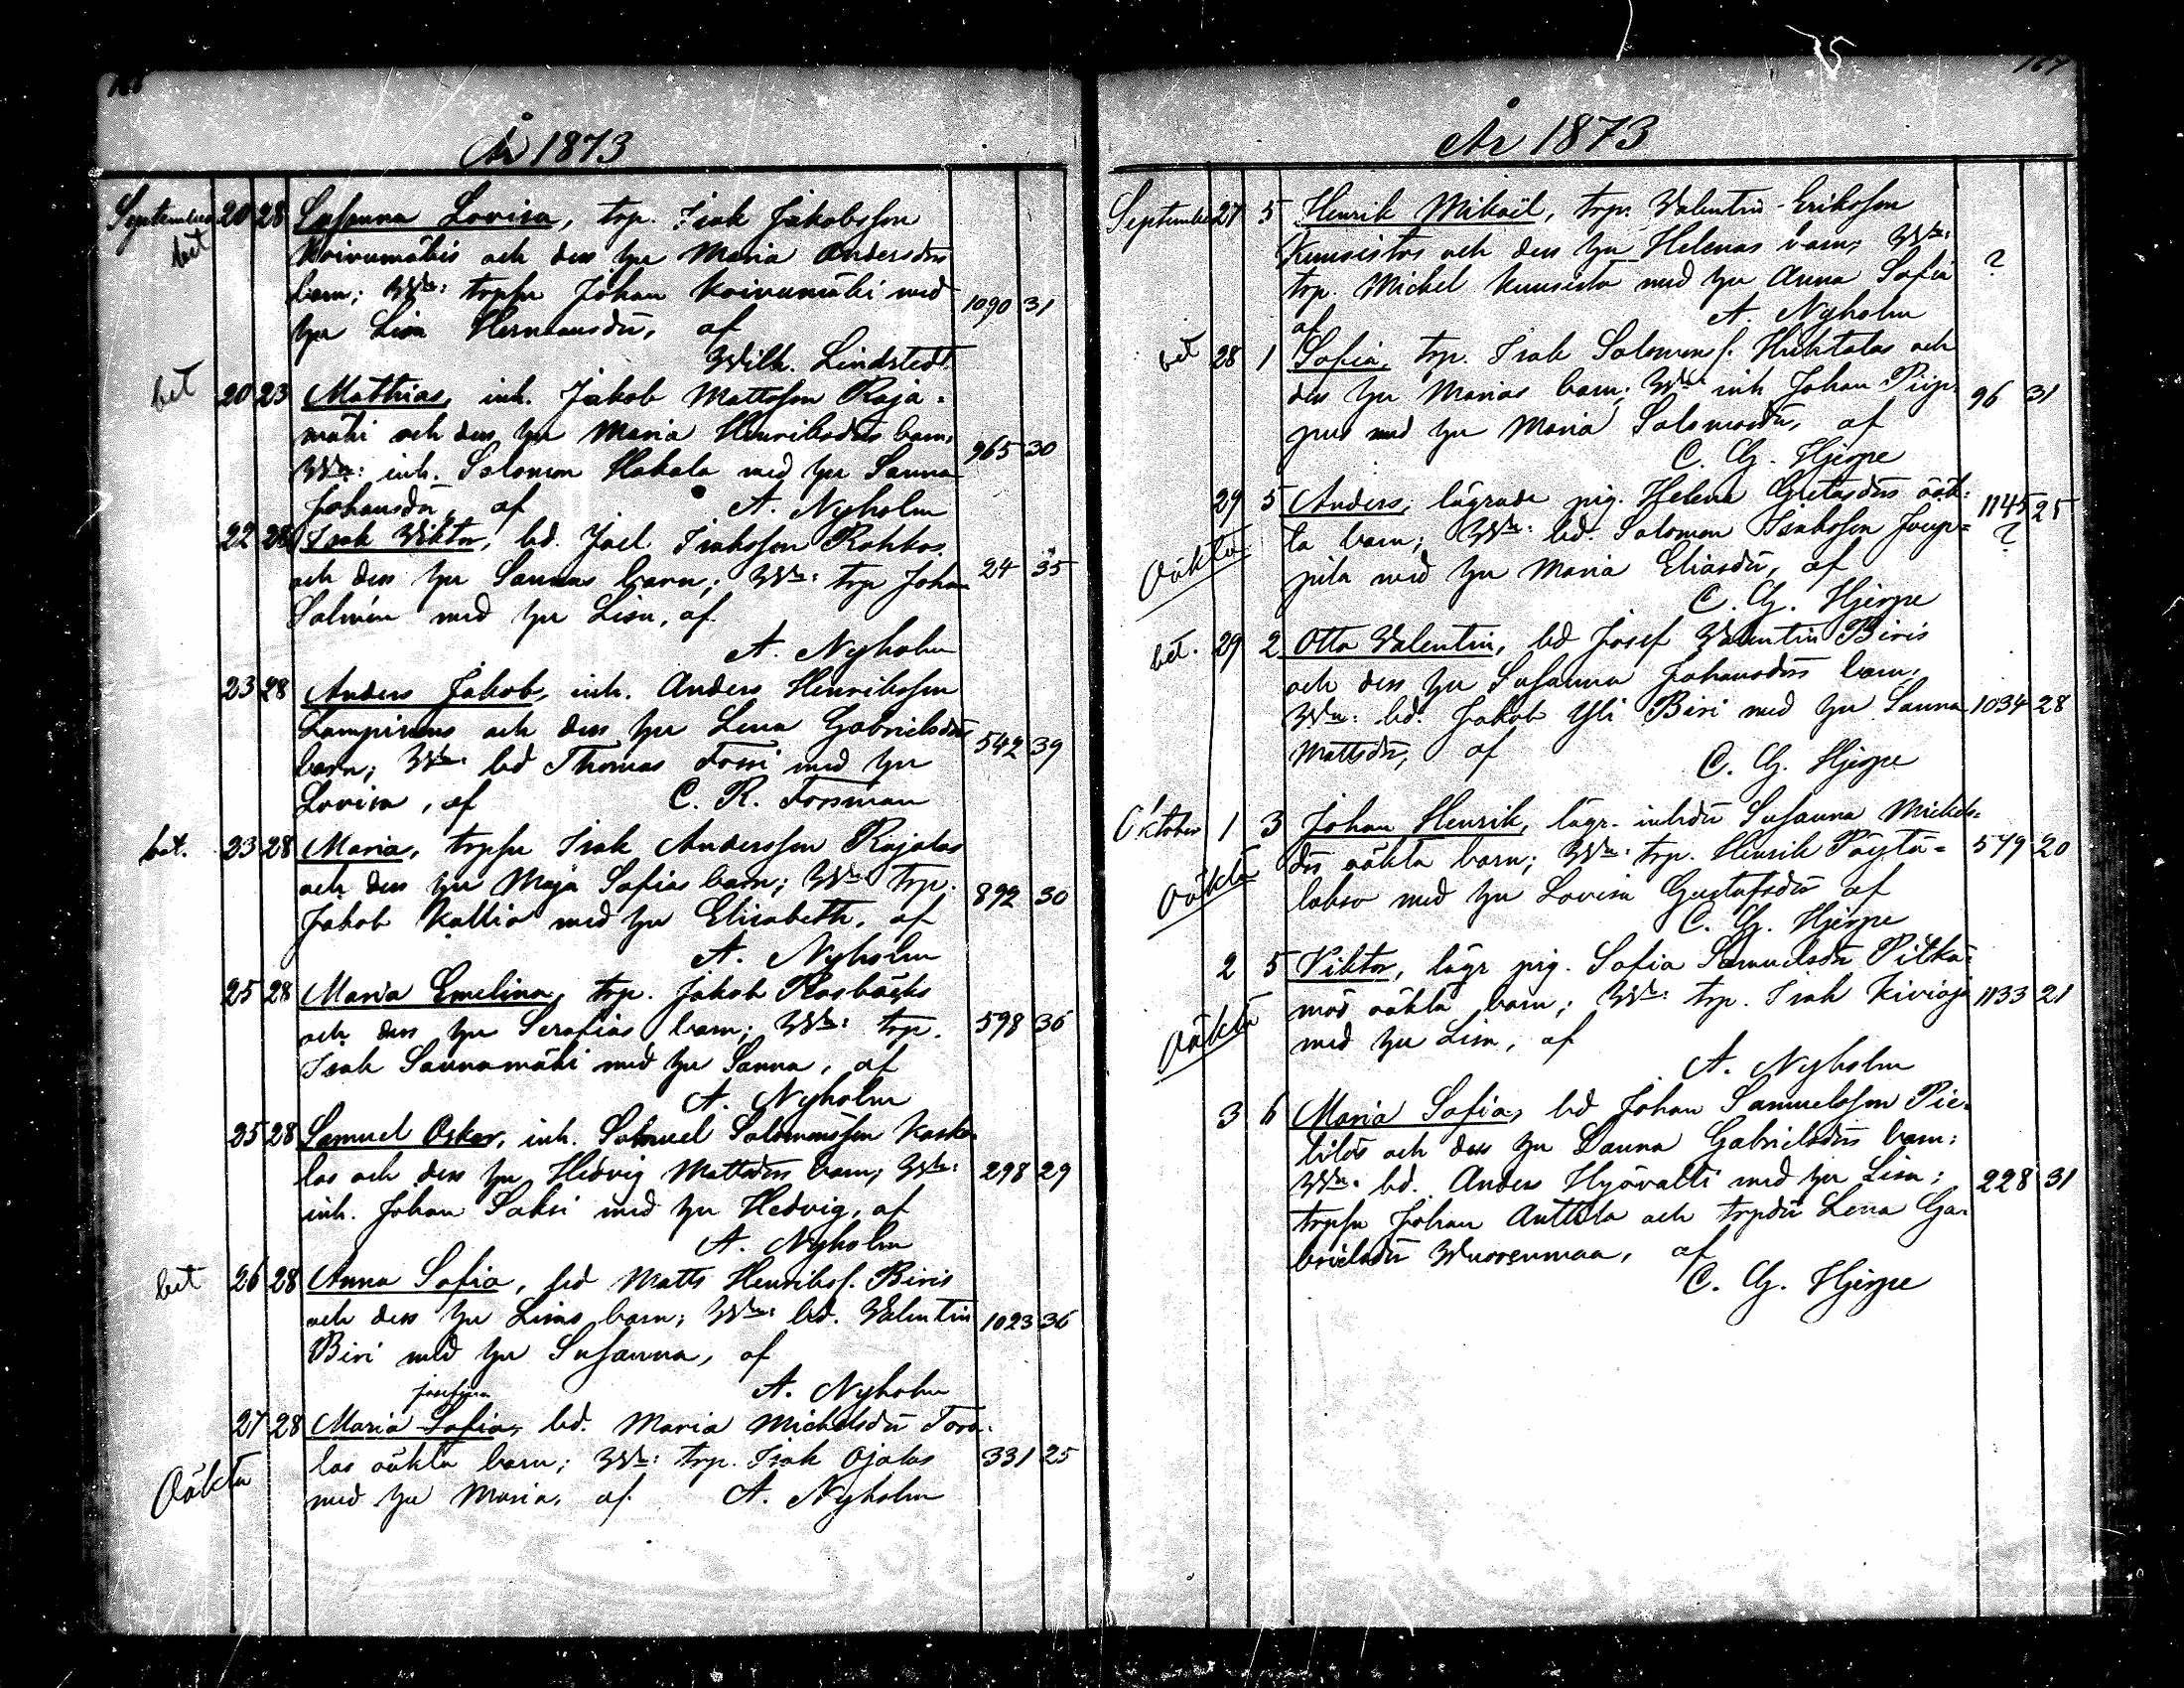 166
År 1873
September 20 28 Susanna Lovisa, trp. Isak Jakobsson
bet Koivumäkis och dess hu Maria Andersdrs
barn; Wn: trpsn Johan Koivumäki med 1090 31
hu Lisa Hermansdr, af
Wilh. Lindstedt
bet 20 23 Mathias, inh. Jakob Mattsson Raja-
mäki och dess hu Maria Henriksdrs barn,
Wn: inh. Salomon Hakala med hu Sanna 965 30
Johansdr, af A. Nyholm
22 28 Isak Wiktor, bd. Joel Isaksson Rahkos
och dess hu Sannas barn; Wn: trp Johan 24 35
Salmén med hu Lisa, af
A. Nyholm
23 28 Anders Jakob, inh. Anders Henriksson
Lampinens och dess hu Lena Gabrielsdrs 542 39
barn; Wn: bd Thomas Forsi med hu
Lovisa, af C. R. Forsman
bet. 23 28 Maria, trpsn Isak Andersson Rajalas
och dess hu Maja Sofias barn; Wn trp. 892 30
Jakob Kallio med hu Elisabeth, af
A. Nyholm
25 28 Maria Emelina, trp. Jakob Rosbäcks
och dess hu Serafias barn; Wn: trp. 598 36
Isak Saunamäki med hu Sanna, af
A. Nyholm
25 28 Samuel Oskar, inh. Samuel Salomonsson Kaska-
las och dess hu Hedvig Mattsdrs barn; Wn: 298 29
inh. Johan Saksi med hu Hedvig, af
A. Nyholm
bet 26 28 Anna Sofia, bd Matts Henrikss. Biris
och dess hu Lisas barn; Wn: bd. Valentin 1023 36
Biri med hu Susanna, af
A. Nyholm
Josefina
27 28 Maria Sofia, bd. Maria Michelsdr Tora-
Oäkta las oäkta barn; Wn: trp. Isak Ojalas 331 25
med hu Maria, af. A. Nyholm
167
År 1873
September 27 5 Henrik Mikaël, trp. Valentin Eriksson
Kuusistos och dess hu Helenas barn, Wn: ?
trp. Michel Kuusisto med hu Anna Sofia
af A. Nyholm
bet 28 1 Sofia, trp. Isak Salomons. Huhtalas och
dess hu Marias barn; Wn inh Johan Piip- 96 31
pus med hu Maria Salomonsdr, af
C. G. Hjerpe
29 5 Anders, lägrade pig. Helena Gretasdrs oäk- 1145 25
Oäkta ta barn; Wn: bd. Salomon Isaksson Joup- ?
pila med hu Maria Eliasdr, af
C. G. Hjerpe
bet. 29 2 Otto Valentin, bd Josef Valentin Biris
och dess hu Susanna Johansdrs barn,
Wn: bd. Jakob Yli Biri med hu Sanna 1034 28
Mattsdr, af
C. G. Hjerpe
Oktober 1 3 Johan Henrik, lägr. inhdr Susanna Michels-
Oäkta drs oäkta barn; Wn: trp. Henrik Pöytä- 579 20
lakso med hu Lovisa Gustafsdr af
C. G. Hjerpe
2 5 Viktor, lägr pig. Sofia Samuelsdr Pitkä-
Oäkta mos oäkta barn; Wn: trp. Isak Kivioja 1133 21
med hu Lisa, af
A. Nyholm
3 6 Maria Sofia, bd Johan Samuelsson Pie-
tilös och dess hu Sanna Gabrielsdrs barn:
Wn: bd. Anders Hyövalti med hu Lisa; 228 31
trpsn Johan Anttila och trpdr Lena Ga-
brielsdr Wuorenmaa, af
C. G. Hjerpe